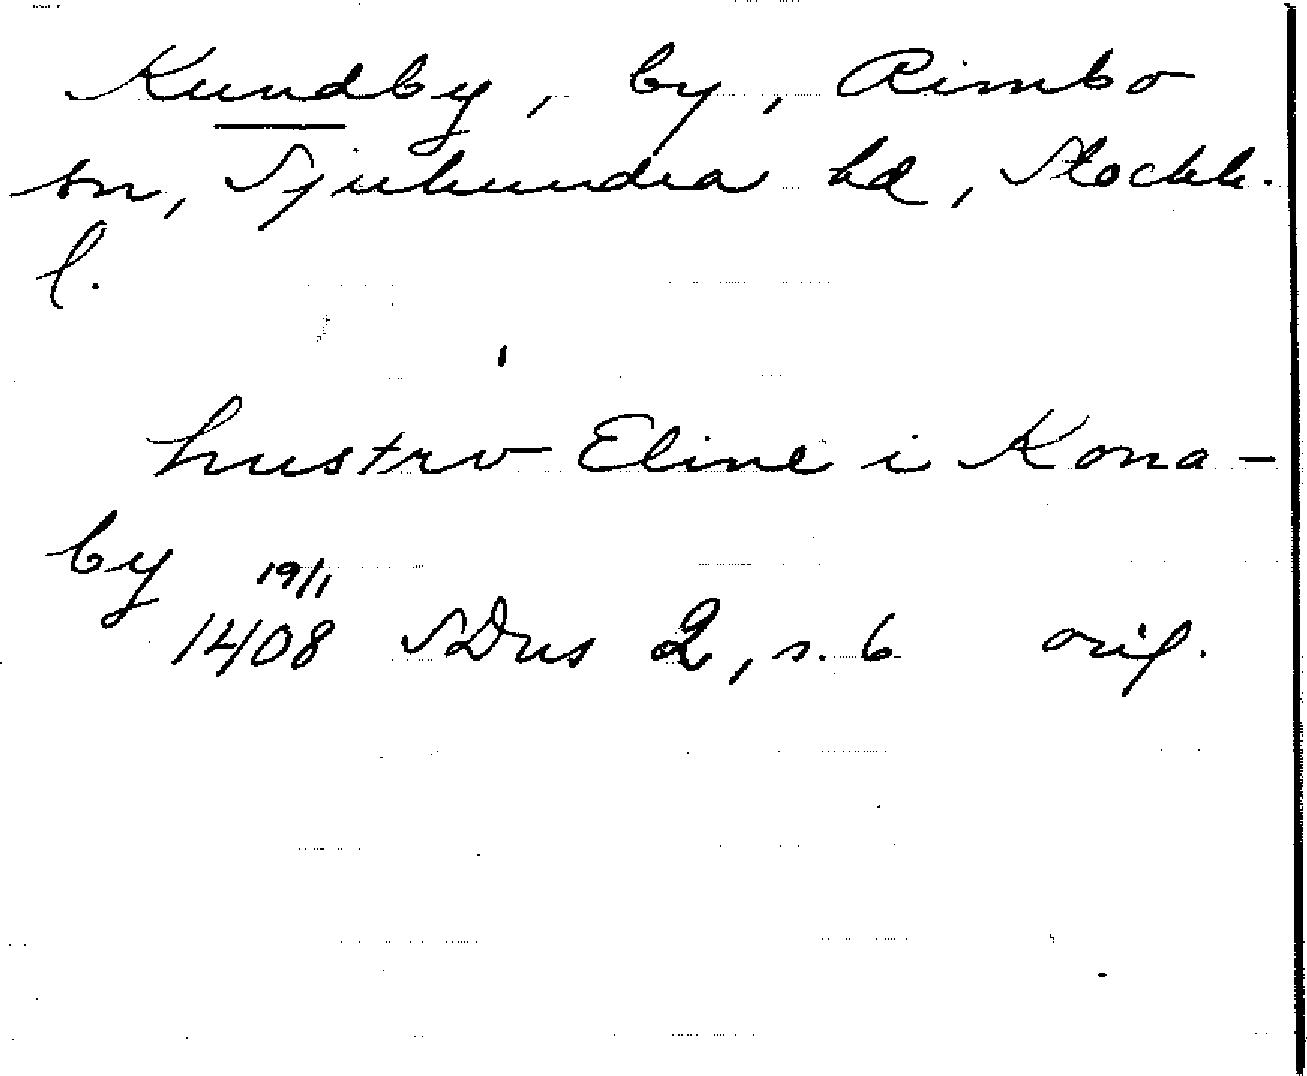 Kundby, by, Rimbo
sn, Sjuhundra hd, Stockh.
l.
hustrv Eline i Kona-
by
19/1
1408 SDns 2, s. 6 orig.